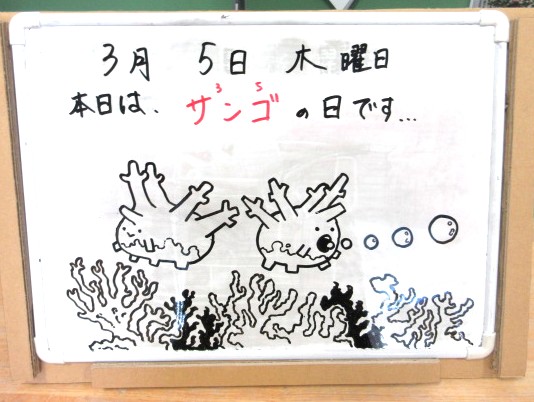 3月 5日 木曜日
3 5
本日は、サンゴの日です...